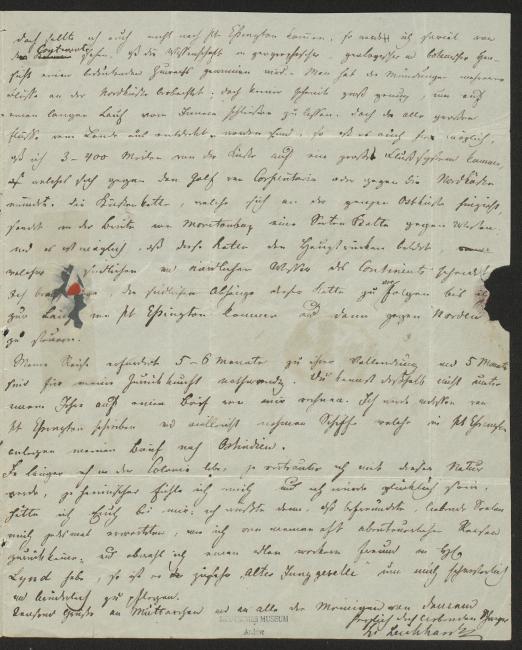 Doch sollte ich auch nicht nach Pt Essington kommen, so werde ich soviel von
dem Continente sehen, daß die Wissenschaft in geographischer, geologischer und botanischer Hin-
sicht einen bedeutenden Zuwachs gewinnen wird. Man hat die Mündungen mehrerer
Flüsse an der Nordküste beobachtet; doch keiner scheint groß genug, um auf
einen langen Lauf vom Innern schließen zu lassen. Doch da alle großen
Flüsse vom Lande aus entdeckt worden sind, so ist es auch hier möglich,
daß ich 3-400 Meilen von der Küste auf ein großes Flußsystem komme,
welches sich gegen den Golf von Carpentaria oder gegen die Nordküste
mündet. Die Küstenkette, welche sich an der ganzen Ostküste hinzieht,
sendet in der Breite von Moretonbay eine Seitenkette gegen Westen
und es ist möglich, daß diese Kette den Hauptrücken bildet,
welcher südlichen und nördlichen Wasser des Continents scheidet.
Ich, die südlichen Abhänge dieser Kette zu verfolgen bis ich
zur von Pt Essington komme und dann gegen Norden
zu steuern.
Meine Reise erfordert 5-6 Monate zu ihrer Vollendung und 5 Monate
sind für meine Zurückkunft nothwendig. Du kannst deßhalb nicht unter
einem Jahre auf einen Brief von mir rechnen. Ich werde indessen von
Pt Essington schreiben und vielleicht nehmen Schiffe welche in Pt Essington
anlegen meinen Brief nach Ostindien.
Je länger ich in der Colonie lebe, je vertrauter ich mit dieser Natur
werde, je heimischer fühle ich mich und ich würde glücklich sein,
hätte ich Euch bei mir; ich wüßte denn, daß befreundete, liebende Seelen
mich jedesmal erwarteten, wenn ich von meinen oft abenteuerlichen Reisen
zurückkehre; und obwohl ich einen edlen wackern Freund an
Lynd habe, so ist er zu sehr "alter Junggeselle" um mich schwesterlich
und kindlich zu pflegen.
Tausend Grüße an Mütterchen und an alle die Meinigen von Deinem
herzlich Dich liebenden Schwager
L. Leichhardt
DEUTSCHES MUSEUM
Archiv